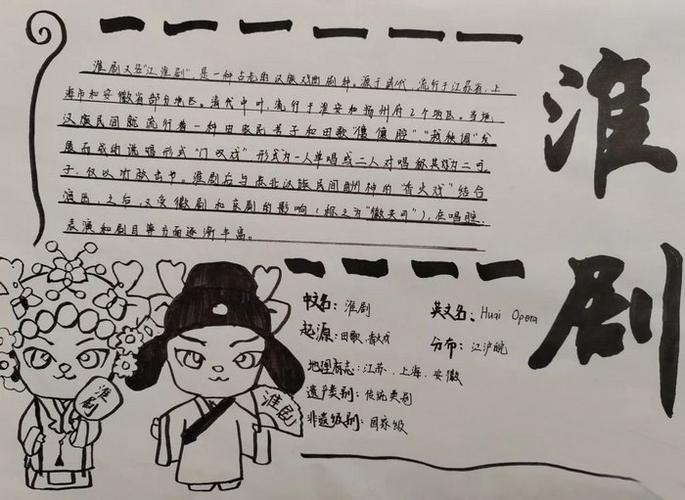 淮剧
淮剧又名"江淮剧",是一种古老的汉族戏曲剧种。源于清代,流行于江苏省,上
海市和安徽省部分地区。清代中叶,流行于淮安和扬州府2个地区。当地
汉族民间就流行着一种由农民号子和田歌"儴儴腔"、"栽秧调"发
展而成的说唱形式"门叹戏"形式为一人单唱或二人对唱称其为二可
子,仅以竹板击节。淮剧后与苏北汉族民间酬神的"香火戏"结合
演出,之后,又受徽剧和京剧的影响(称之为"徽夹可"),在唱腔、
表演和剧目等方面逐渐丰富。
中文名:淮剧
英文名:Huai Opera
起源:田歌、香火戏
分布:江沪皖
地理标志:江苏、上海、安徽
遗产类别:传统类别
非遗级别:国家级
淮剧
淮剧